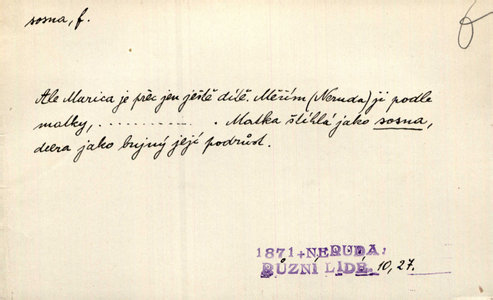 sosna, f.
Ale Marica je přec jen ještě dítě. Měřím (Neruda) ji podle
matky, ............ . Matka štíhlá jako sosna,
dcera jako bujný její podrůst.
1871+NERUDA:
RŮZNÍ LIDÉ. 10, 27.